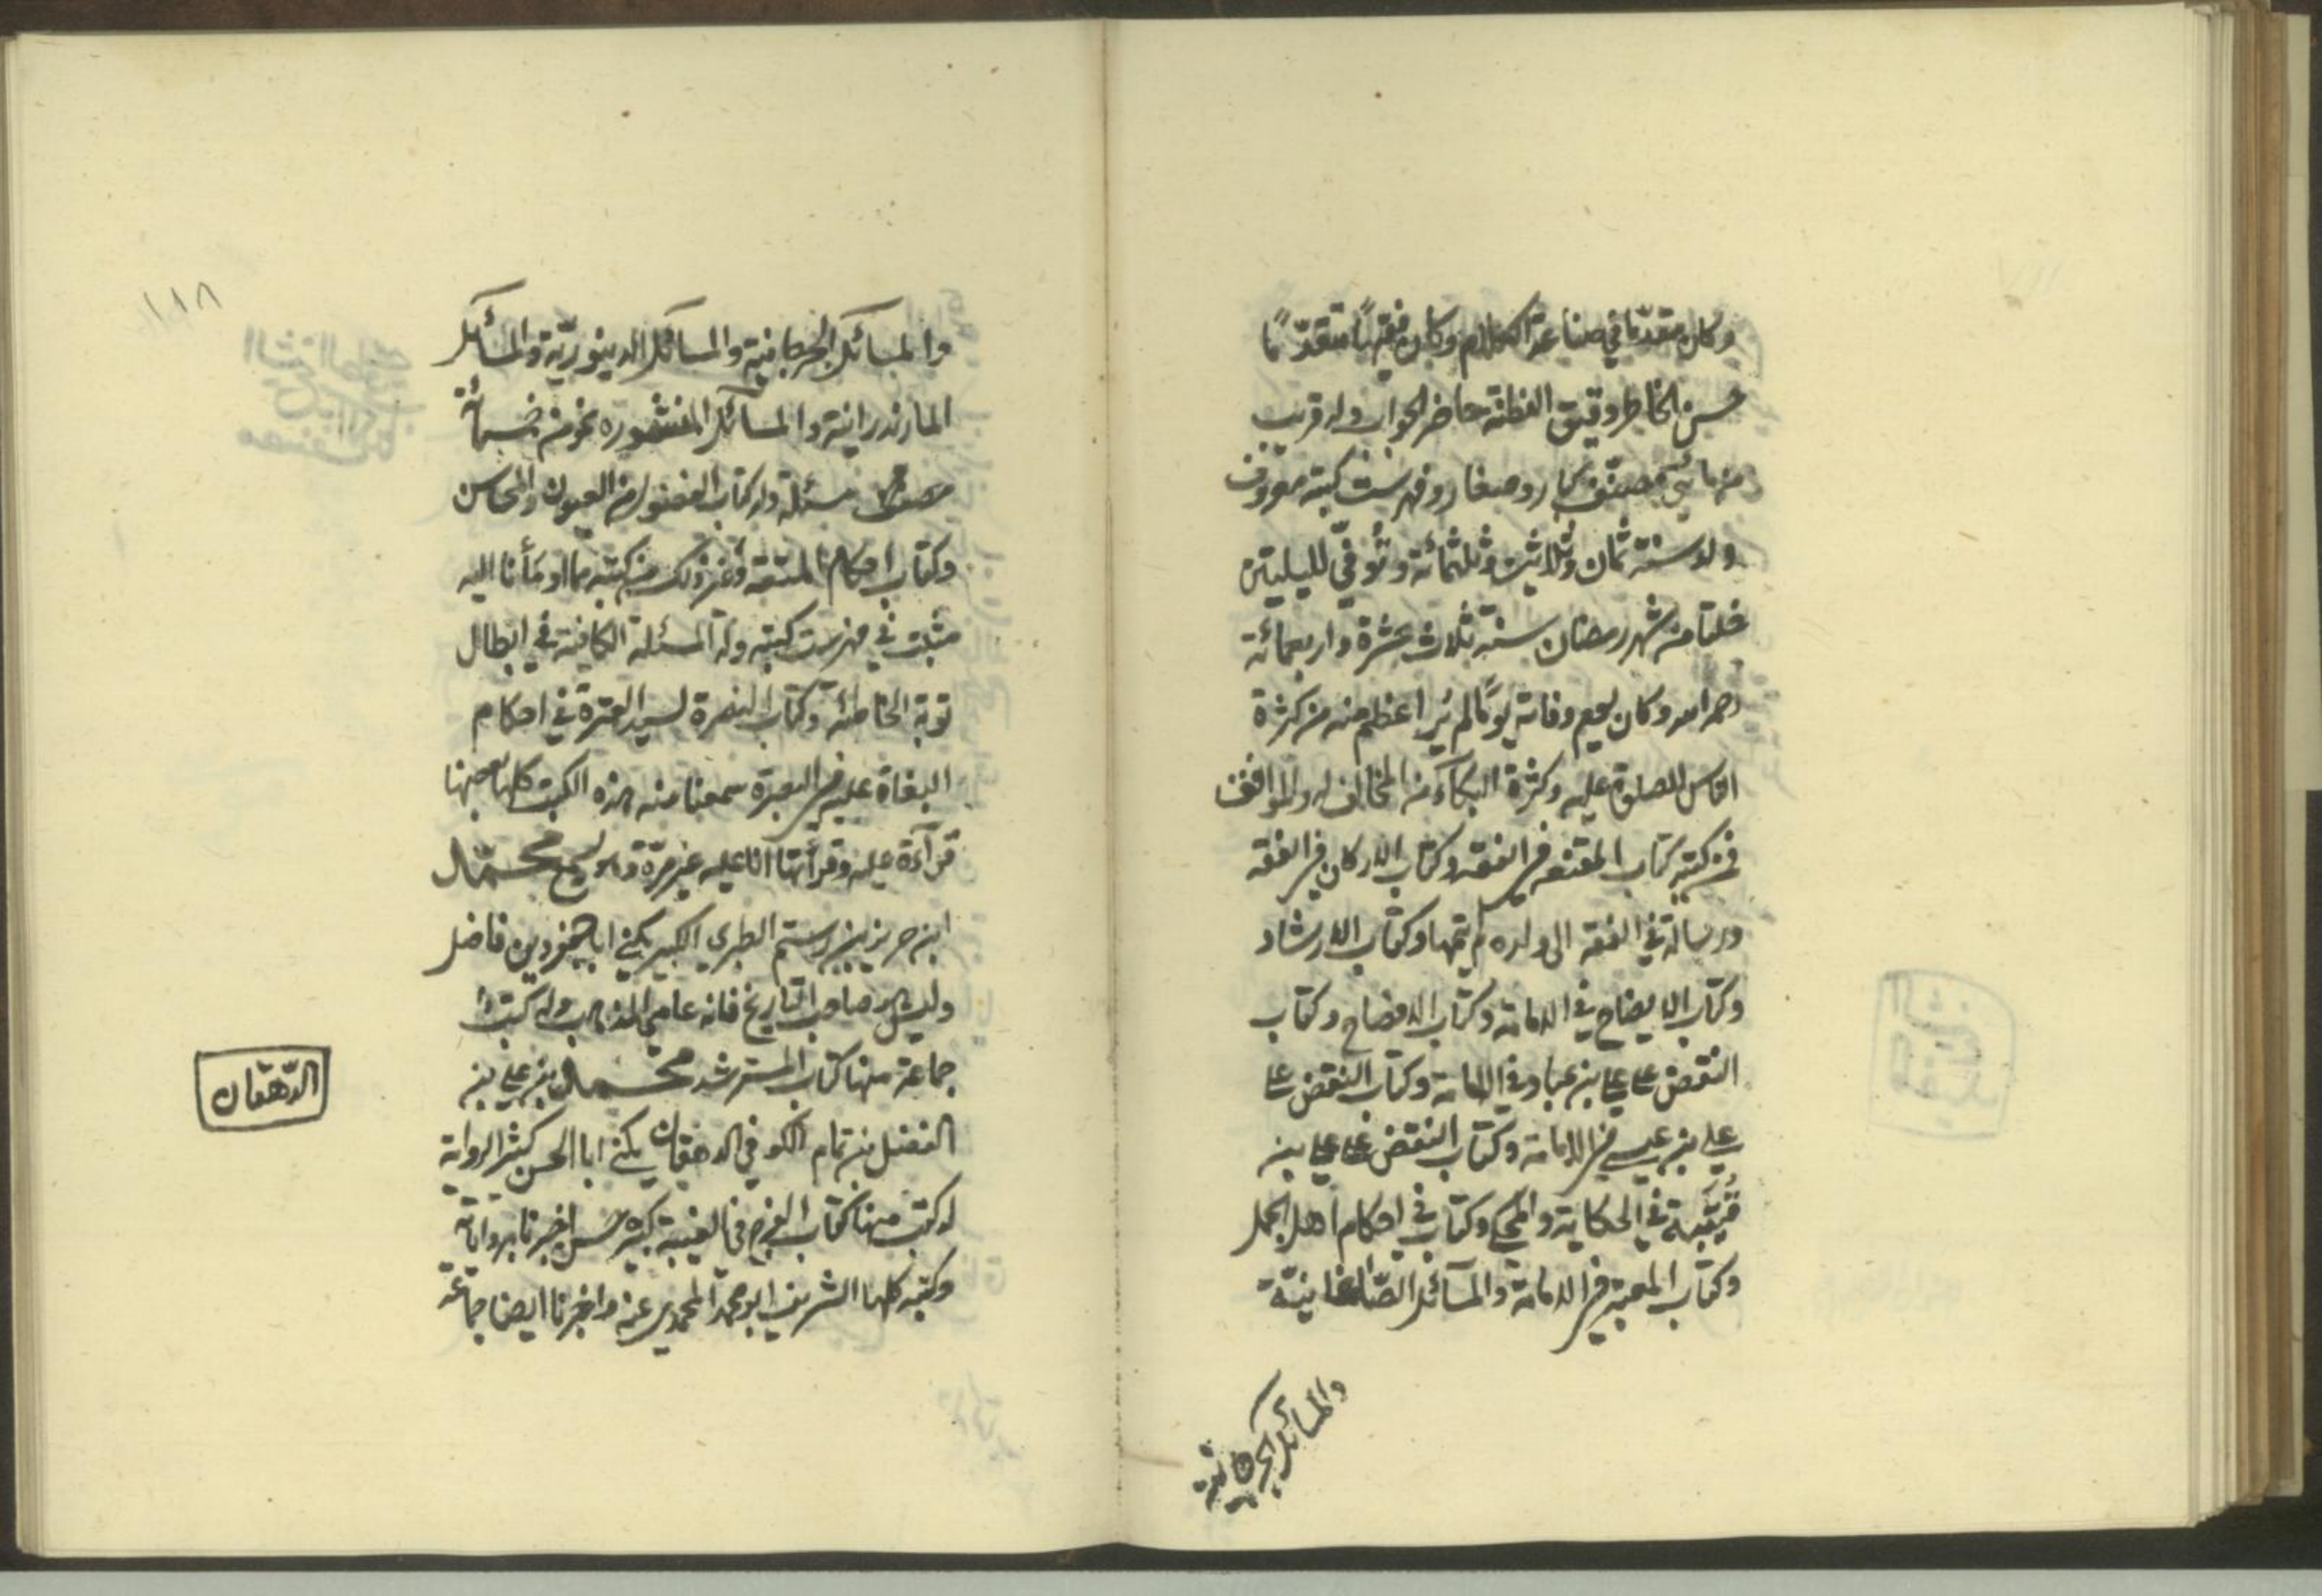 وكان مقدّما في صناعة الكلام وكان فقيهًا متقدّمًا
حسن الخاطر دقيق الفطنة حاضر الجواب وله قريب
من مائتي مصنّف كبار وصغار وفهرست كتبه معروف
ولد سنة ثمان وثلاثين وثلثمائة وتُوفّي لليلتين
خلتا من شهر رمضان سنة ثلاث عشرة واربعمائة
رحمه الله وكان يوم وفاته يومًا لم يُر اعظم منه من كثرة
الناس للصلوة عليه وكثرة البكآء من المخالف له والموافق
فمن كتبه كتاب المقنعه في الفقه وكتاب الاركان في الفقه
ورسالة في الفقه الى ولده لم يتمها وكتاب الارشاد
وكتاب الايضاح في الامامة وكتاب الافصاح وكتاب
النقض على علي بن عباد في الامامة وكتاب النقض على
علي بن عيسى في الامامة وكتاب النقض على علي بن
قُتَيبة في الحكاية والمحكي وكتاب في احكام اهل الجمل
وكتاب المعبر في الامامة والمسآئل الصّاغانيّة
والمسائل الجرجانية
١١٨
والمسائل الجرجانية والمسائل الدينوريّة والمسائل
المازندرانية والمسائل المنثوره نحو من خمسمائة
مسئلة وله كتاب الفصول من العيون والمحاسن
وكتاب احكام المتعة وغير ذلك من كتبه مما اومأنا اليه
مثبت في فهرست كتبه وله المسئلة الكافية في ابطال
توبة الخاطئة وكتاب النصرة لسيد العترة في احكام
البغاة عليه في البصرة سمعنا منه هذه الكتب كلها بعضها
قرآءة عليه وقرأتها انا عليه غير مرّة وهو يسمع محمّد
ابن جرير بن رستم الطبري الكبير يكنى ابا جعفر دين فاضل
وليس هو صاحب التاريخ فانه عامي المذهب وله كتب
جماعة منها كتاب المسترشد محمد بن علي بن
الفضل بن تمام الكوفي الدهقان يكنى ابا الحسن كثير الرواية
له كتب منها كتاب الفرج في الغيبة كبير حسن اخبرنا برواياته
وكتبه كلها الشريف ابو محمد المحمدي عنه واخبرنا ايضا جماعة
الدّهقان